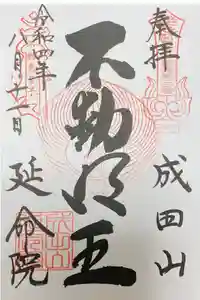 奉拝
成田山
不動明王
令和四年
八月廿一日
延命院